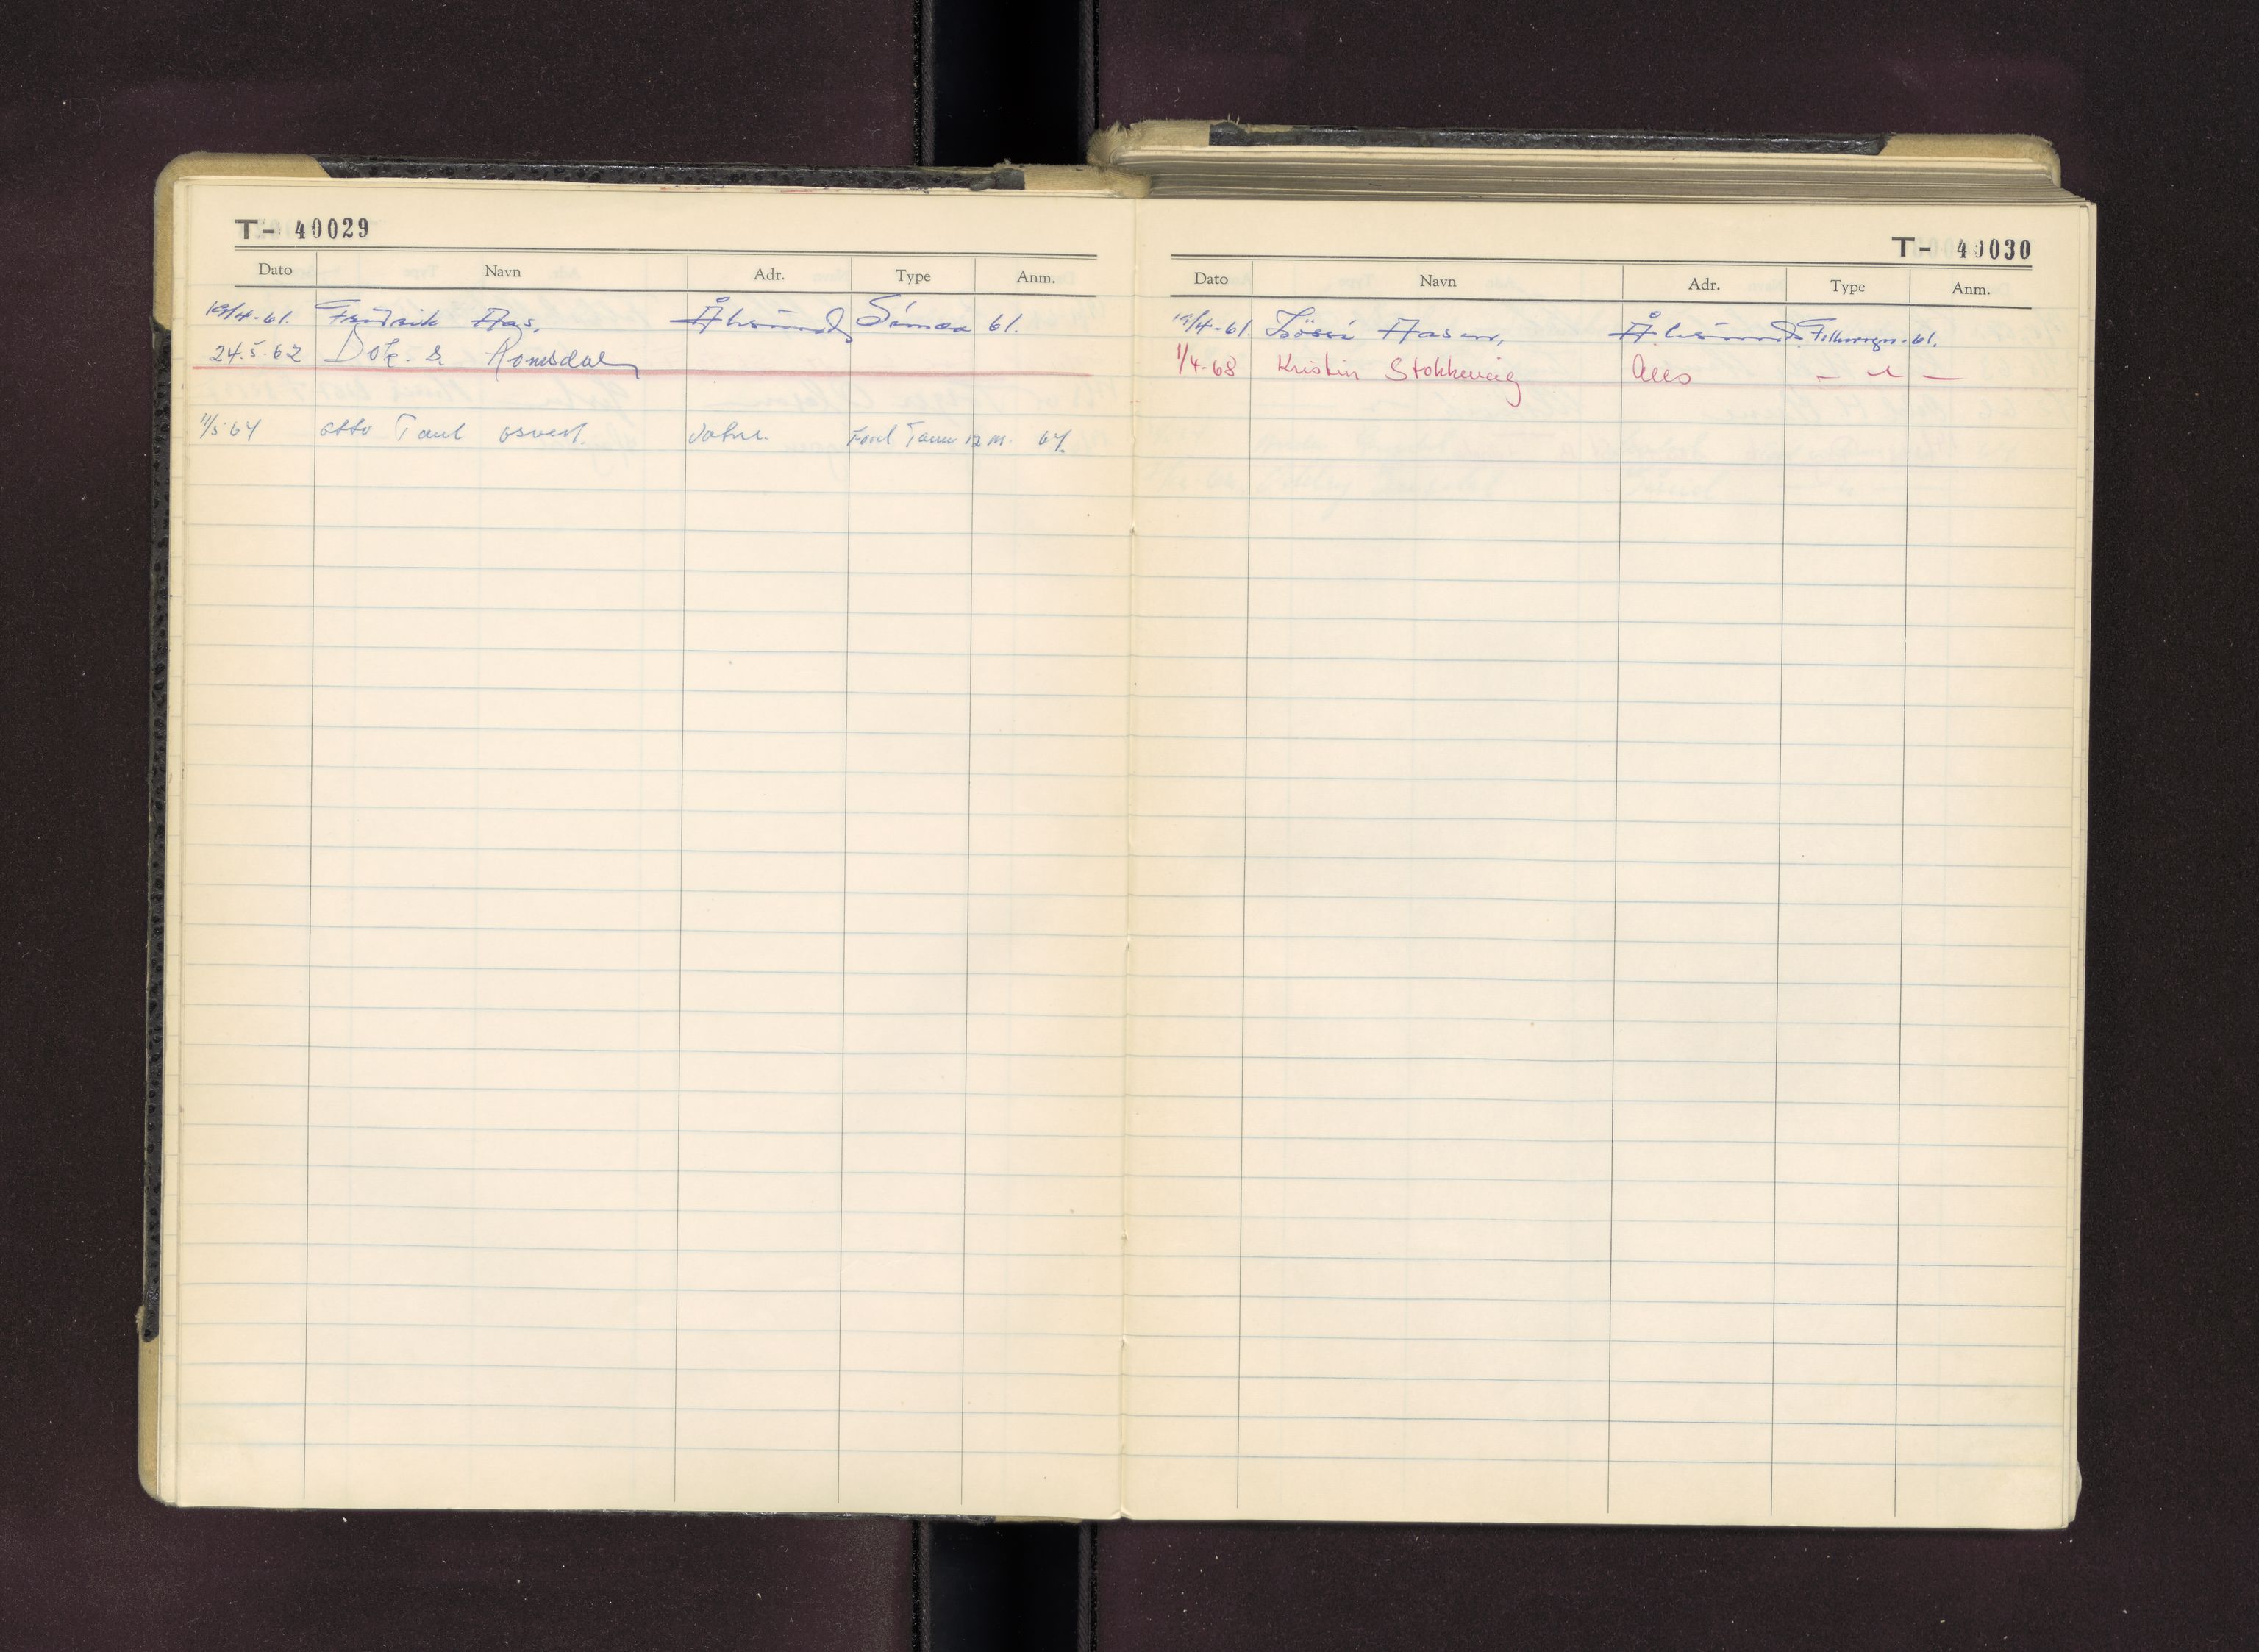 T- 40029
Dato Navn Adr. Type Anm.
19/4-61. Fridrik Aas, Ålesund Simca 61.
24.5.62 Dok. s. Romsdal
11/5 64 Otto Taul Ford Taunus 12 M. 64.
T- 40030
Dato Navn Adr. Type Anm.
19/4-61. Aasen, Ålesund. Folkevogn. 61.
1/4-68 Kristin Stokkevåg — " —